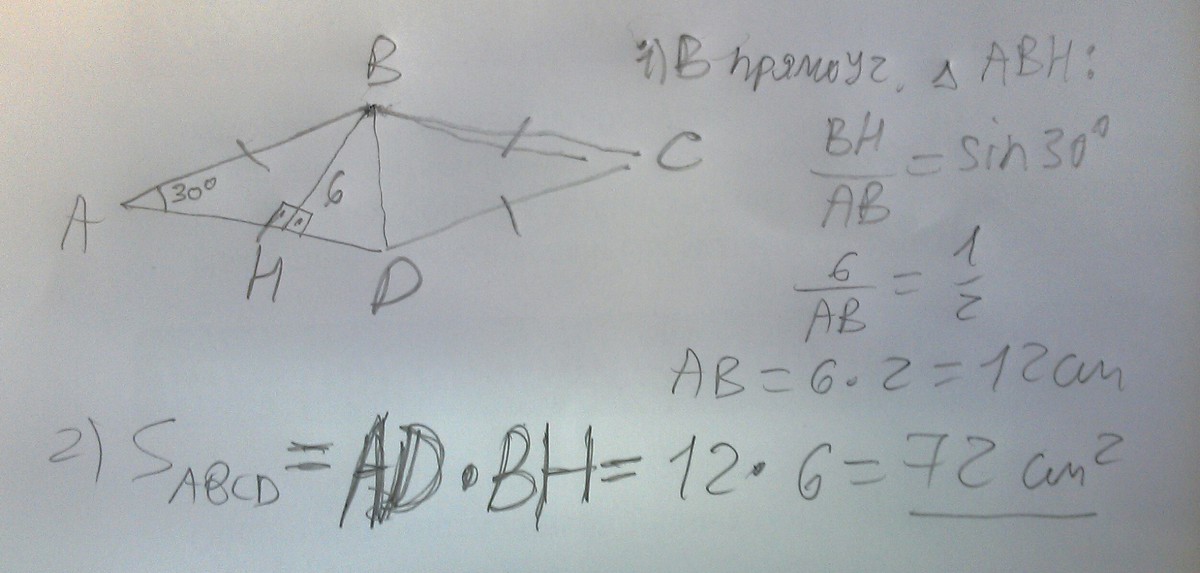 B
A
30°
6
H
D
C
1) В прямоуг. Δ ABH:
BH/AB = sin30°
6/AB = 1/2
AB = 6·2 = 12 см
2) S_ABCD = AD·BH = 12·6 = 72 см²